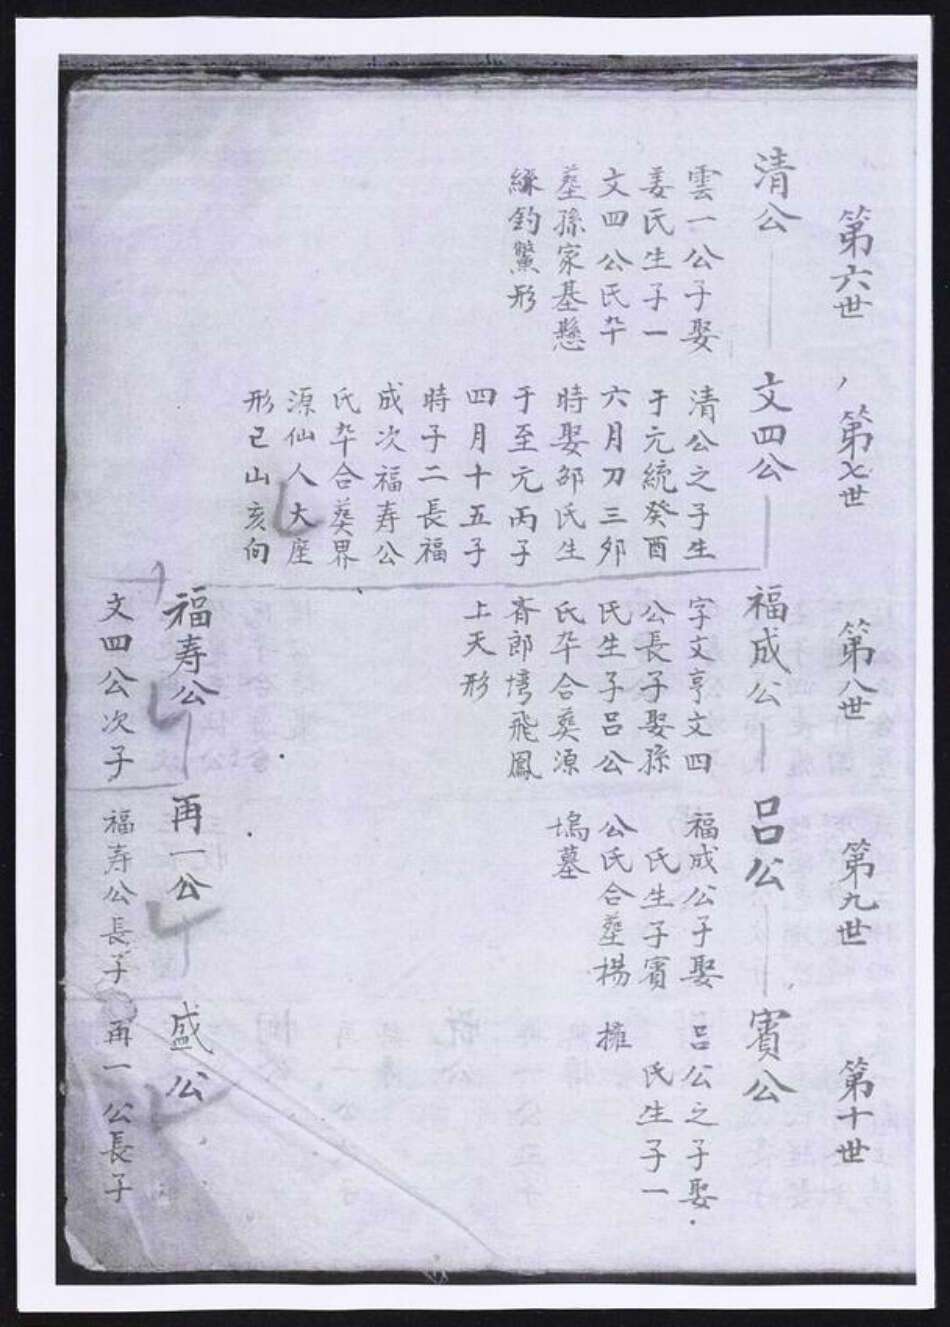 第六世
清公
雲一公子娶
姜氏生子一
文四公氏卆
塟孫家基懸
綵釣鱉形
第七世
文四公
清公之子生
于元統癸酉
六月刀三夘
時娶邵氏生
于至元丙子
四月十五子
時子二長福
成次福寿公
氏卆合葵界
源仙人大座
形己山亥向
第八世
福成公
字文亨文四
公長子娶孫
氏生子吕公
氏卆合葵源
斉郎塆飛鳳
上天形
第九世
吕公
福成公子娶
氏生子賓
公氏合塟楊
塢墓
第十世
賓公
吕公之子娶
氏生子一
擁
福寿公
文四公次子
再一公
福寿公長子
盛公
再一公長子